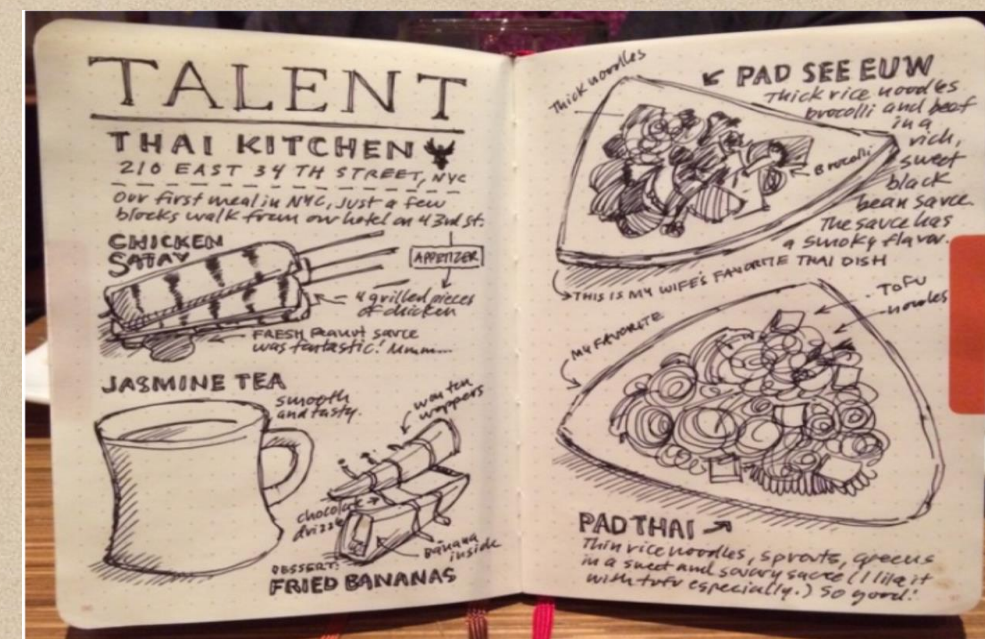 TALENT
THAI KITCHEN
210 EAST 34TH STREET, NYC
our first meal in NYC, Just a few
blocks walk from our hotel on 43rd st.
CHICKEN
SATAY
APPETIZER
4 grilled pieces
of chicken
FRESH Peanut sauce
was fantastic! Mmm...
JASMINE TEA
smooth
and tasty.
won ton
wrappers
chocolate
drizzle
Banana
inside
DESSERT:
FRIED BANANAS
Thick noodles
PAD SEE EUW
Thick rice noodles
brocolli and beef
in a
rich,
sweet
black
bean sauce.
The sauce has
a smoky flavor.
Brocolli
THIS IS MY WIFE'S FAVORITE THAI DISH
MY FAVORITE
TOFU
noodles
PAD THAI
Thin rice noodles, sprouts, greens
in a sweet and savory sauce (I like it
with tofu especially.) So good!